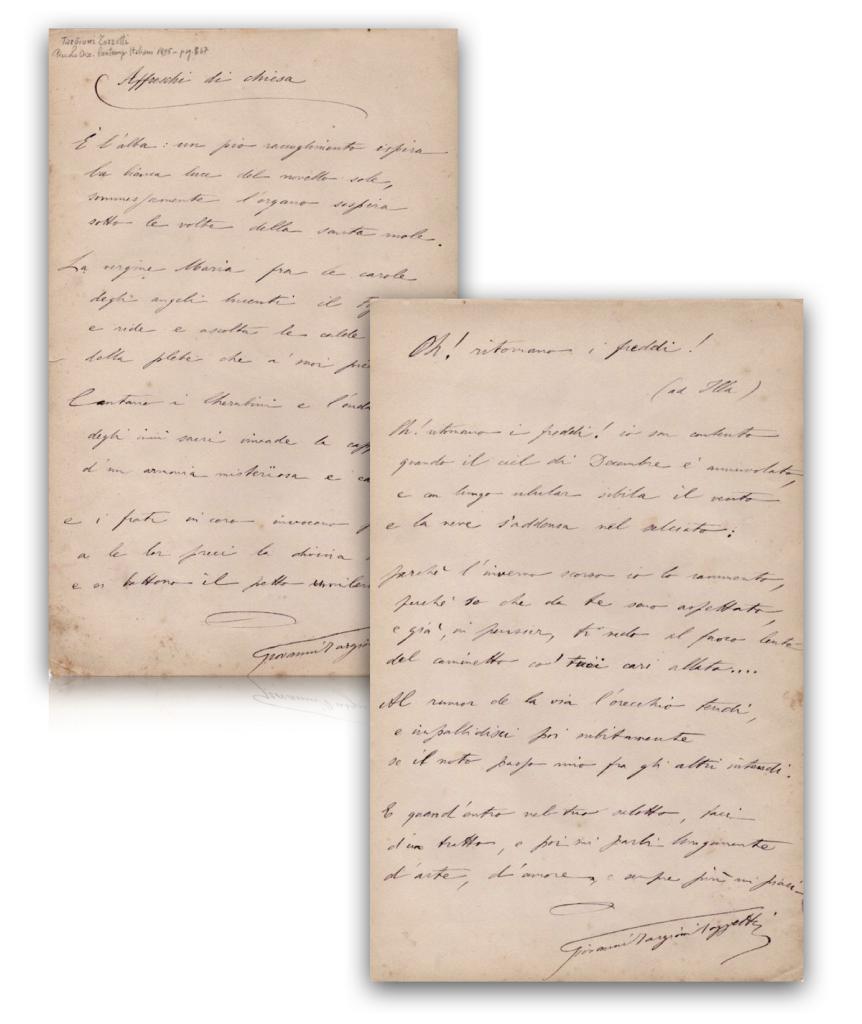 Targioni Tozzetti
Affreschi di chiesa
È l'alba: un pio raccoglimento ispira
la bianca luce del novello sole,
sommessamente l'organo sospira
sotto le volte della santa mole.
La vergine Maria fra le carole
degli angeli lucenti il
e ride e ascolta le calde
della plebe che a' suoi
Cantano i Cherubini e l'onda
degli inni sacri invade la
d'un armonia misterïosa e
e i frati in coro invocano
a le lor preci la divina
e si battono il petto
Giovanni Targioni
Oh! ritornano i freddi!
(ad Illa)
Oh! ritornano i freddi! io son contento
quando il ciel di Decembre è annuvolato,
e con lungo ulular sibila il vento
e la neve s'addensa nel selciato:
perchè l'inverno scorso io lo rammento,
perchè so che da te sono aspettato,
e già, in pensier, ti vedo al fuoco lento
del caminetto co' tuoi cari allato....
Al rumor de la via l'orecchio tendi,
e impallidisci poi subitamente
se il noto passo mio fra gli altri intendi.
E quand'entro nel tuo salotto, taci
d'un tratto, e poi mi parli lungamente
d'arte, d'amore, e sempre più mi piaci.
Giovanni Targioni Tozzetti